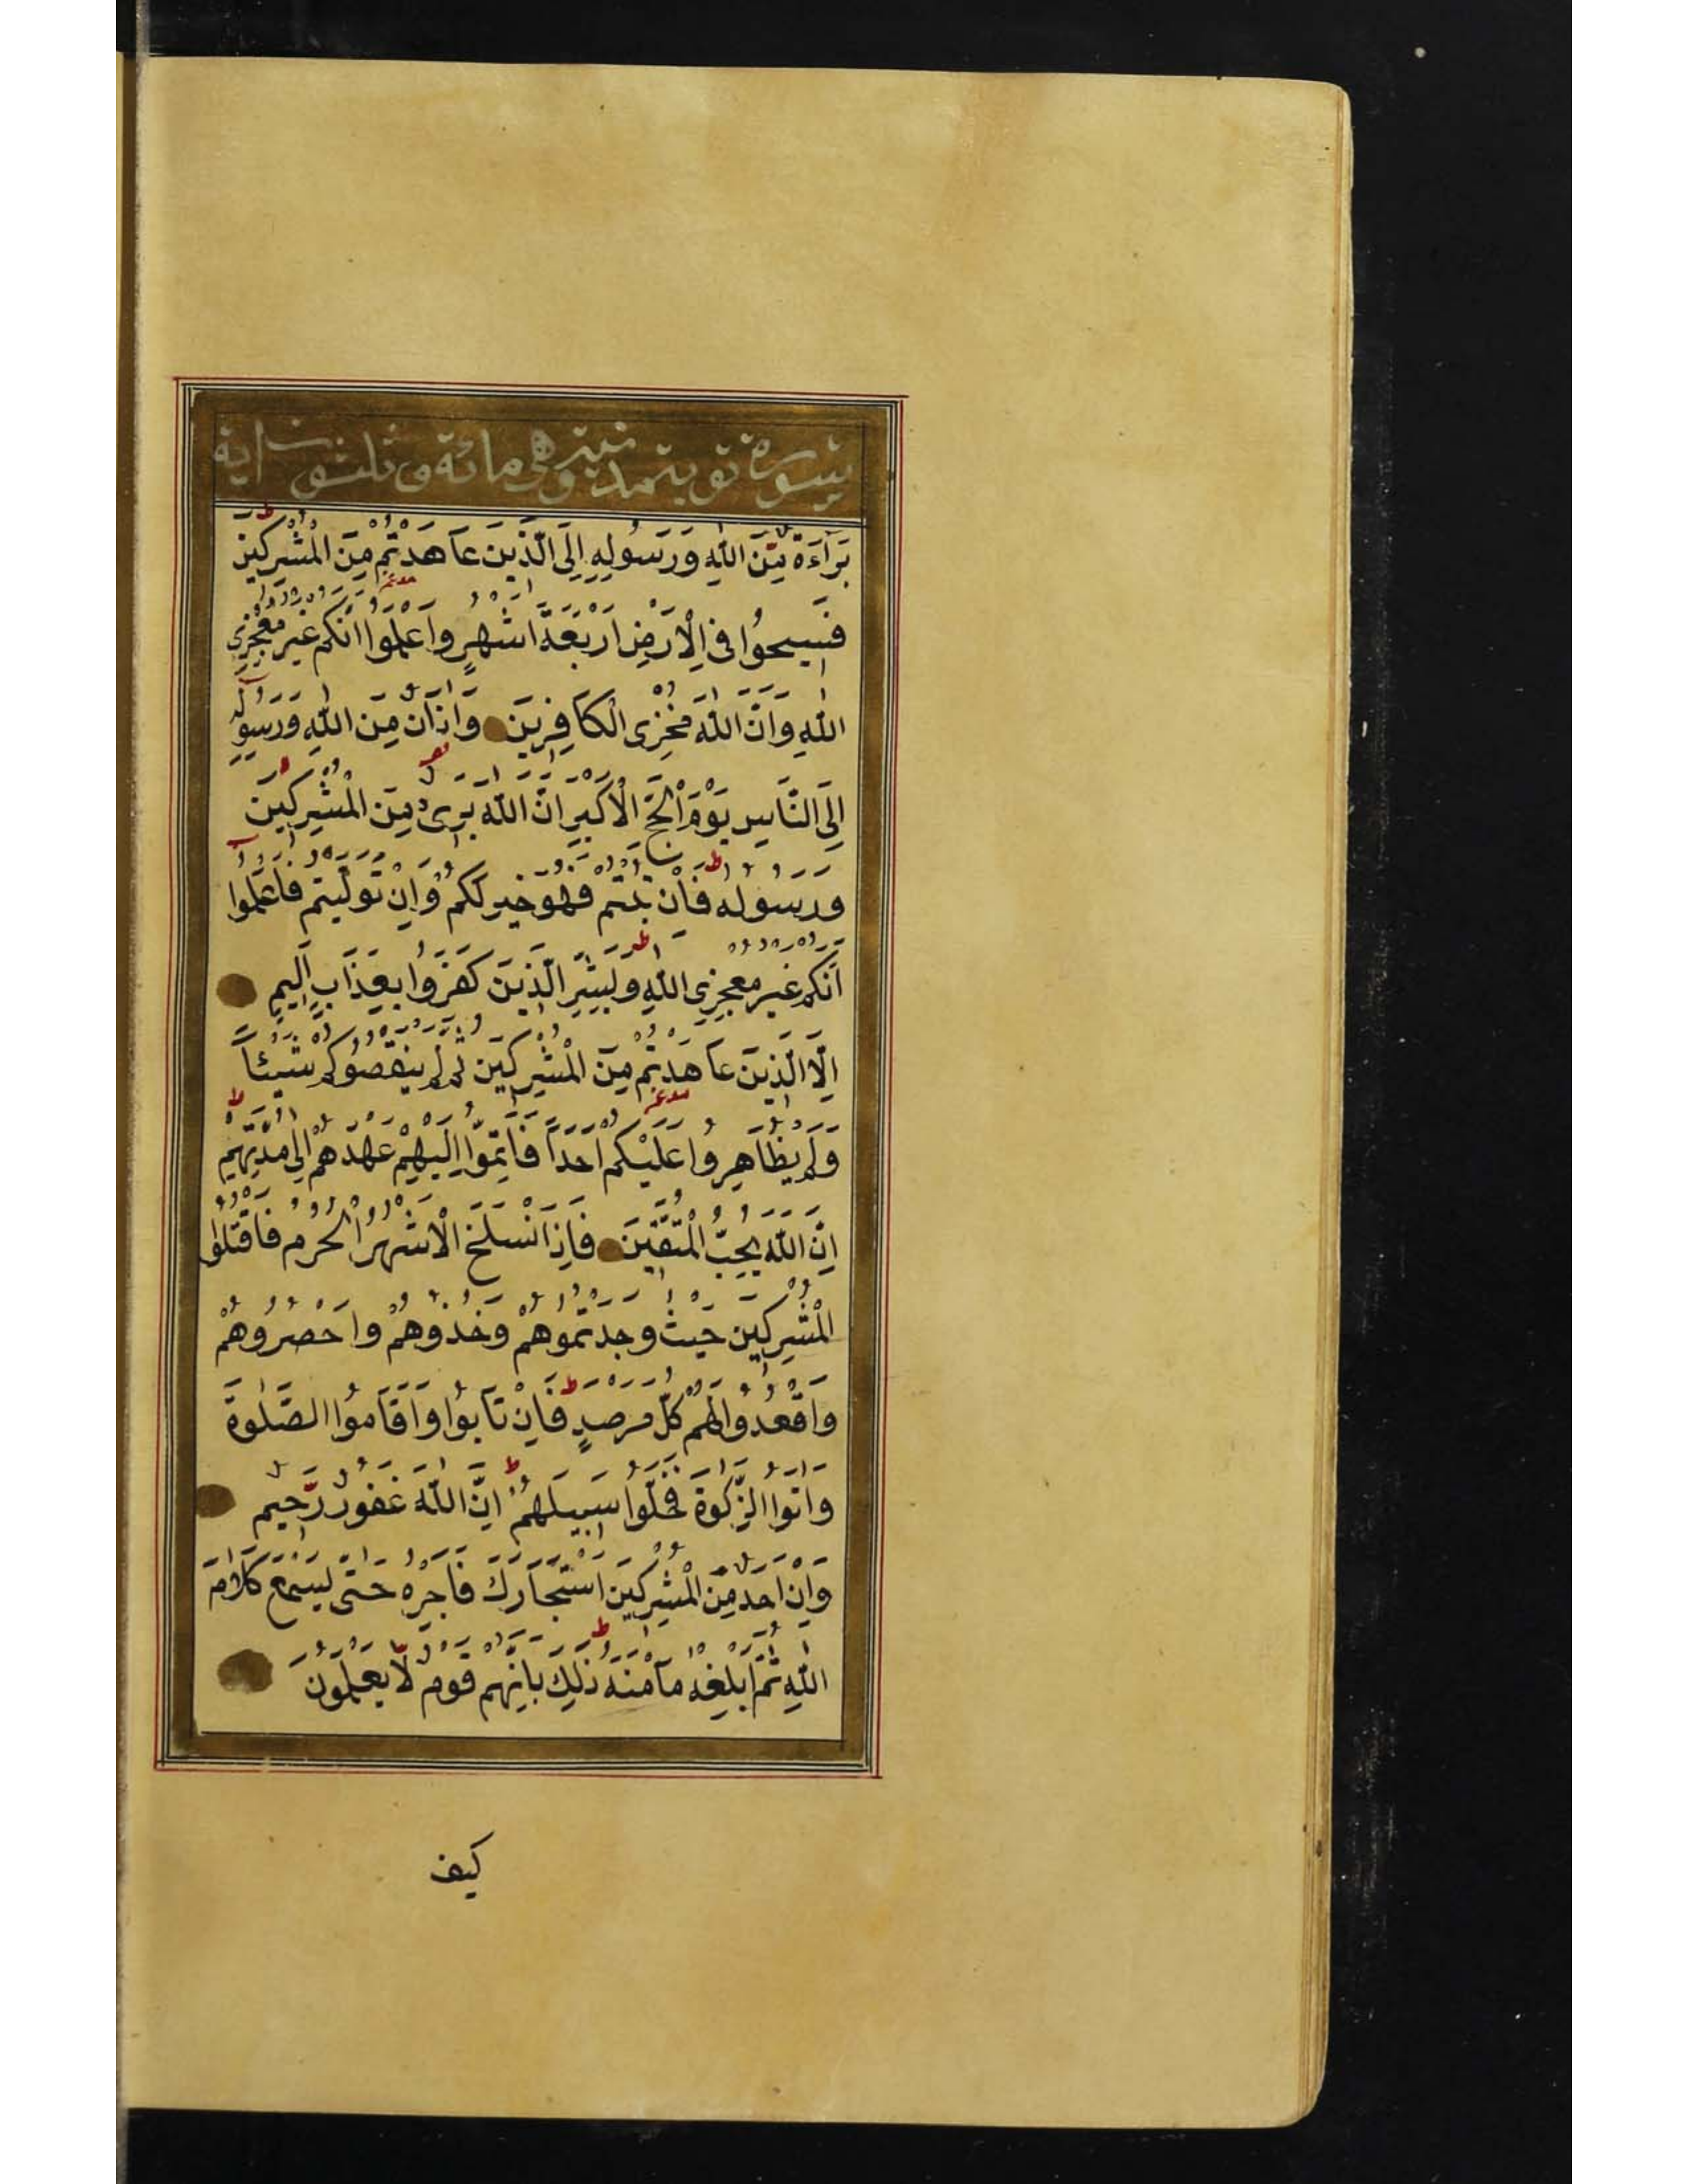 سورة توبة مدنية وهى مائة و ثلثون اية
بَرَآءَةٌ مِّنَ اللّٰهِ وَرَسُولِهِ اِلَى الَّذِينَ عَاهَدْتُمْ مِنَ الْمُشْرِكِينَ ط
فَسِيحُوا فِى الْاَرْضِ اَرْبَعَةَ اَشْهُرٍ وَاعْلَمُوا اَنَّكُمْ غَيْرُ مُعْجِزِى
اللّٰهِ وَاَنَّ اللّٰهَ مُخْزِى الْكَافِرِينَ وَاَذَانٌ مِّنَ اللّٰهِ وَرَسُولِهِ
اِلَى النَّاسِ يَوْمَ الْحَجِّ الْاَكْبَرِ اَنَّ اللّٰهَ بَرِىءٌ مِنَ الْمُشْرِكِينَ
وَرَسُولُهُ ط فَاِنْ تُبْتُمْ فَهُوَ خَيْرٌ لَكُمْ وَاِنْ تَوَلَّيْتُمْ فَاعْلَمُوا
اَنَّكُمْ غَيْرُ مُعْجِزِى اللّٰهِ ط وَبَشِّرِ الَّذِينَ كَفَرُوا بِعَذَابٍ اَلِيمٍ
اِلَّا الَّذِينَ عَاهَدْتُمْ مِنَ الْمُشْرِكِينَ ثُمَّ لَمْ يَنْقُصُوكُمْ شَيْئاً
وَلَمْ يُظَاهِرُوا عَلَيْكُمْ اَحَداً فَاَتِمُّوا اِلَيْهِمْ عَهْدَهُمْ اِلَى مُدَّتِهِمْ ط
اِنَّ اللّٰهَ يُحِبُّ الْمُتَّقِينَ فَاِذَا انْسَلَخَ الْاَشْهُرُ الْحُرُمُ فَاقْتُلُوا
الْمُشْرِكِينَ حَيْثُ وَجَدْتُمُوهُمْ وَخُذُوهُمْ وَاحْصُرُوهُمْ
وَاقْعُدُوا لَهُمْ كُلَّ مَرْصَدٍ ط فَاِنْ تَابُوا وَاَقَامُوا الصَّلٰوةَ
وَاٰتَوُا الزَّكٰوةَ فَخَلُّوا سَبِيلَهُمْ ط اِنَّ اللّٰهَ غَفُورٌ رَّحِيمٌ
وَاِنْ اَحَدٌ مِّنَ الْمُشْرِكِينَ اسْتَجَارَكَ فَاَجِرْهُ حَتّٰى يَسْمَعَ كَلَامَ
اللّٰهِ ثُمَّ اَبْلِغْهُ مَاْمَنَهُ ط ذٰلِكَ بِاَنَّهُمْ قَوْمٌ لَّا يَعْلَمُونَ
كيف